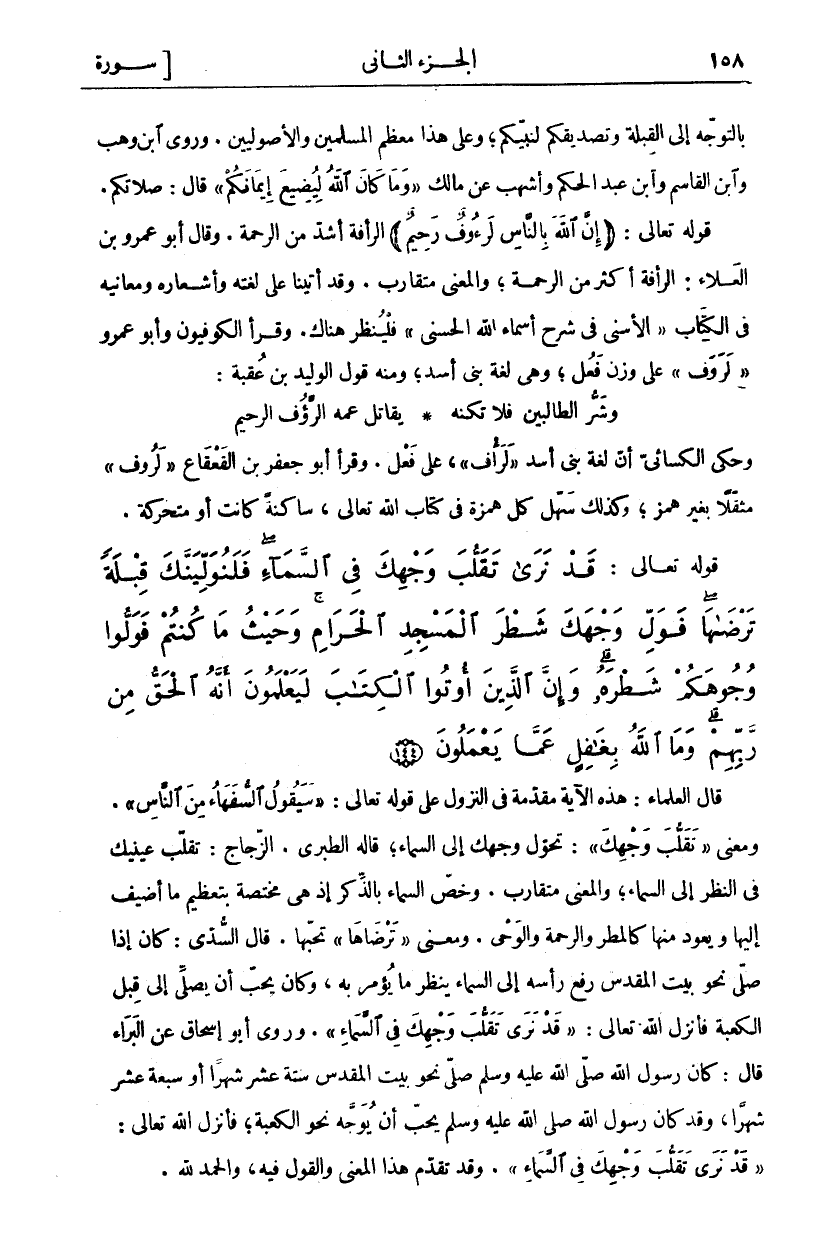 ١٥٨ الجـزء الثانى [ ســورة
بالتوجّه إلى القبلة وتصديقكم لنبيّكم؛ وعلى هذا معظم المسلمين والأصوليين . وروى ٱبن وهب
وٱبن القاسم وٱبن عبد الحكم وأشهب عن مالك «وَمَا كَانَ ٱللَّهُ لِيُضِيعَ إِيمَانَكُمْ» قال : صلاتكم.
قوله تعالى : ﴿إِنَّ ٱللَّهَ بِالنَّاسِ لَرَءُوفٌ رَحِيمٌ﴾ الرأفة أشدّ من الرحمة . وقال أبو عمرو بن
العَـلاء : الرأفة أكثر من الرحمـة ؛ والمعنى متقارب . وقد أتينا على لغته وأشـعاره ومعانيه
فى الكِتَاب « الأسنى فى شرح أسماء الله الحسنى » فلْيُنظر هناك. وقـرأ الكوفيون وأبو عمرو
« لَرَؤُف » على وزن فَعُل ؛ وهى لغة بنى أسد؛ ومنه قول الوليد بن عُقبة :
وشَرُّ الطالبين فلا تكنه * يقاتل عمه الرَّؤُف الرحيم
وحكى الكسائىّ أنّ لغة بنى أسد «لَرَأْف»، على فَعْل . وقرأ أبو جعفر بن القَعْقاع «لَرُوف»
مثقّلًا بغير همز ؛ وكذلك سَهّل كل همزة فى كتاب الله تعالى ، ساكنةً كانت أو متحركة .
قوله تعـالى : قَـدْ نَرَىٰ تَقَلُّبَ وَجْهِكَ فِى ٱلسَّمَآءِ ۖ فَلَنُوَلِّيَنَّكَ قِبْـلَةً
تَرْضَىٰهَا ۚ فَـوَلِّ وَجْهَكَ شَـطْرَ ٱلْمَسْجِدِ ٱلْحَرَامِ ۚ وَحَيْثُ مَا كُنتُمْ فَوَلُّوا
وُجُوهَكُمْ شَـطْرَهُۥ ۗ وَإِنَّ ٱلَّذِينَ أُوتُوا ٱلْكِتَـٰبَ لَيَعْلَمُونَ أَنَّهُ ٱلْحَقُّ مِن
رَّبِّهِمْ ۗ وَمَا ٱللَّهُ بِغَـٰفِلٍ عَمَّـا يَعْمَلُونَ ﴿١٤٤﴾
قال العلماء : هذه الآية مقدّمة فى النزول على قوله تعالى : «سَيَقُولُ ٱلسُّفَهَاءُ مِنَ ٱلنَّاسِ» .
ومعنى « تَقَلُّبَ وَجْهِكَ» : تحوّل وجهك إلى السماء؛ قاله الطبرى . الزّجاج : تقلّب عينيك
فى النظر إلى السماء؛ والمعنى متقارب . وخصّ السماء بالذِّكر إذ هى مختصة بتعظيم ما أضيف
إليها ويعود منها كالمطر والرحمة والوَحْى . ومعـنى « تَرْضَاهَا » تحبّها . قال السُّدّى : كان إذا
صلّى نحو بيت المقدس رفع رأسه إلى السماء ينظر ما يُؤمر به ، وكان يحبّ أن يصلِّى إلى قِبل
الكعبة فأنزل الله تعالى : « قَدْ نَرَى تَقَلُّبَ وَجْهِكَ فِى ٱلسَّمَاءِ » . وروى أبو إسحاق عن البَرَاء
قال : كان رسول الله صلّى الله عليه وسلم صلّى نحو بيت المقدس ستة عشر شهرًا أو سبعة عشر
شهرًا، وقد كان رسول الله صلى الله عليه وسلم يحبّ أن يُوَجَّه نحو الكعبة؛ فأنزل الله تعالى :
« قَدْ نَرَى تَقَلُّبَ وَجْهِكَ فِى ٱلسَّمَاءِ » . وقد تقدّم هذا المعنى والقول فيه، والحمد لله .